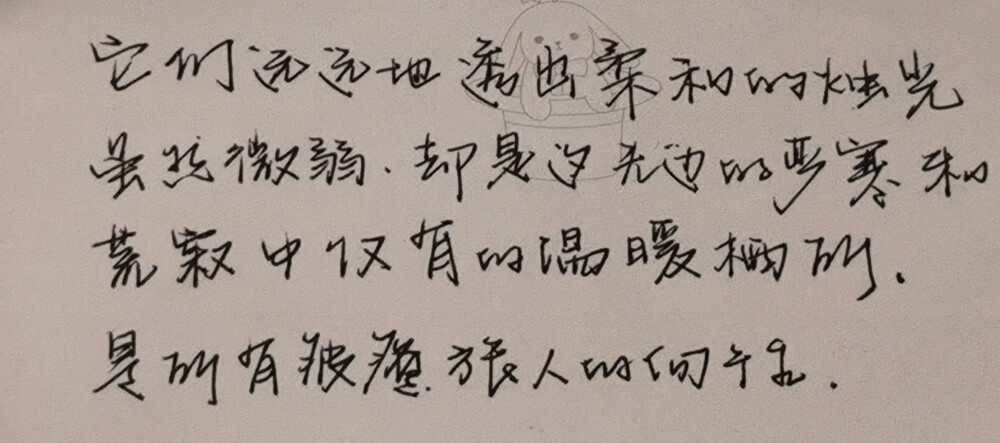 它们远远地透出柔和的烛光
虽然微弱.却是这无边的严寒和
荒寂中仅有的温暖栖所.
是所有疲惫旅人的向往.